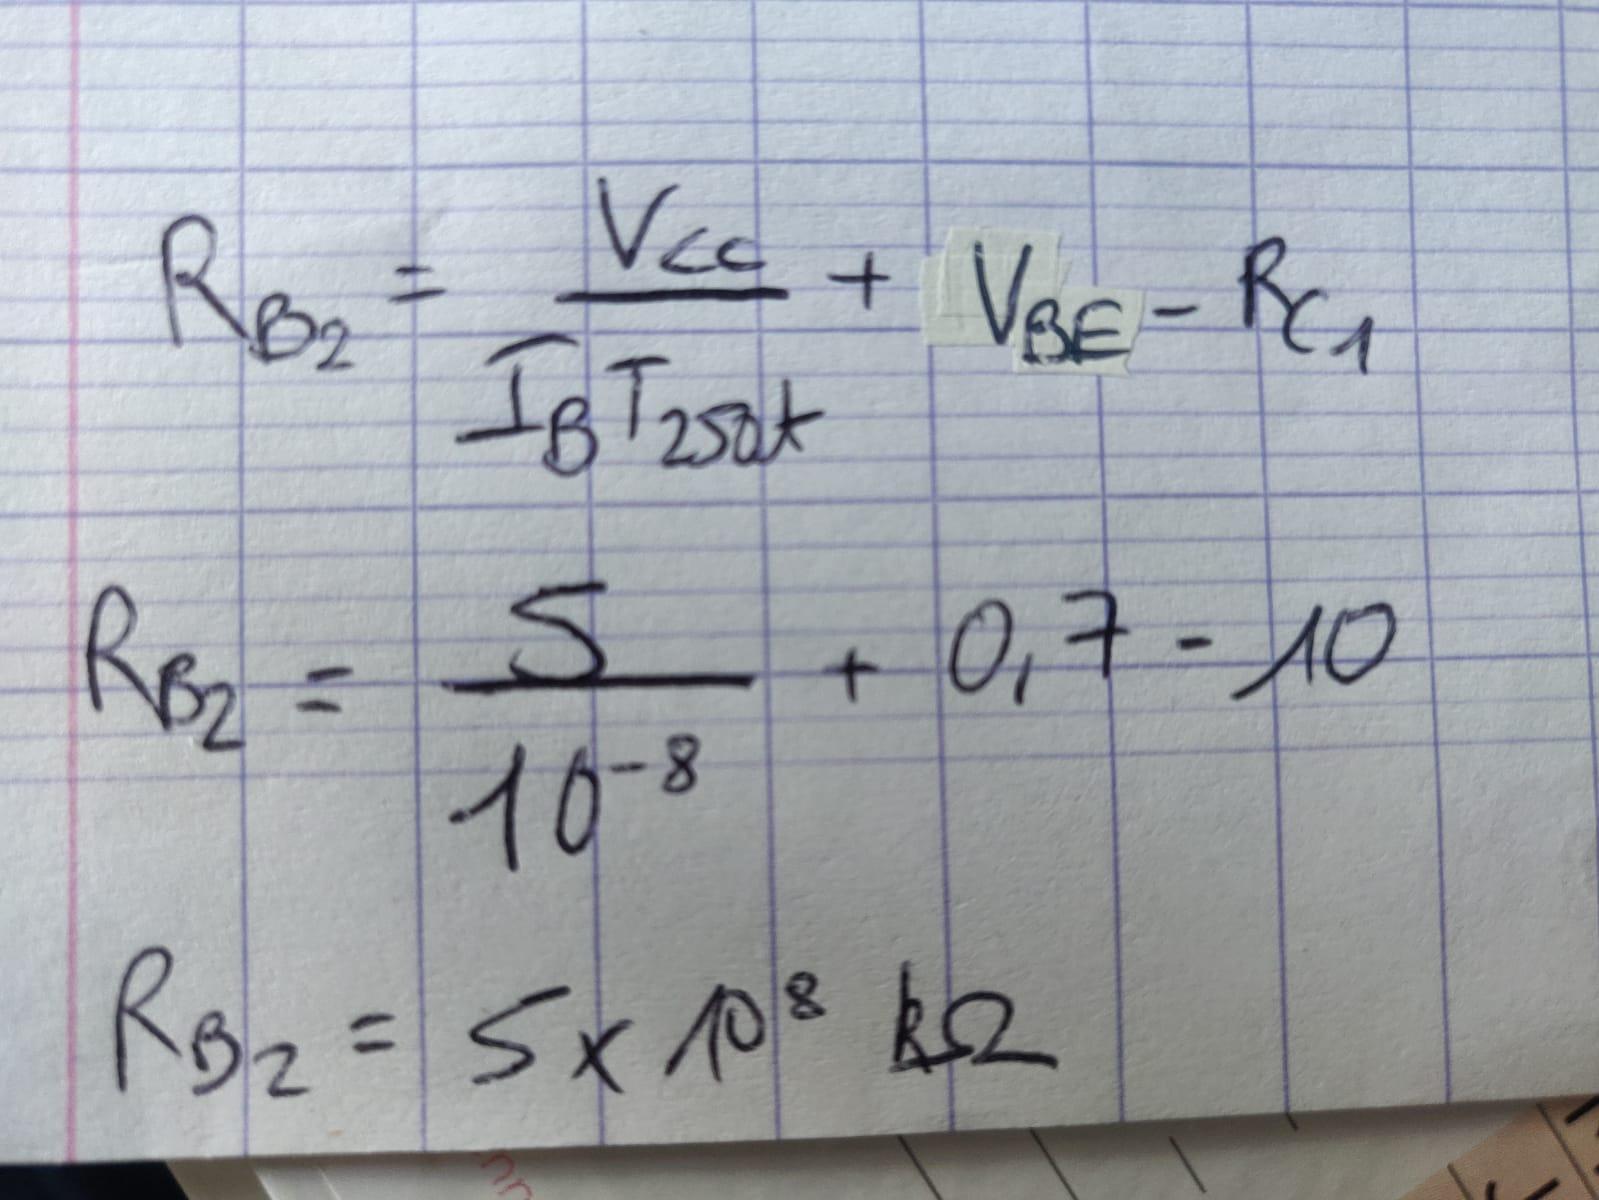 R_B2 = Vcc / I_B T2sat + V_BE - R_C1
R_B2 = 5 / 10^-8 + 0,7 - 10
R_B2 = 5 x 10^8 kΩ